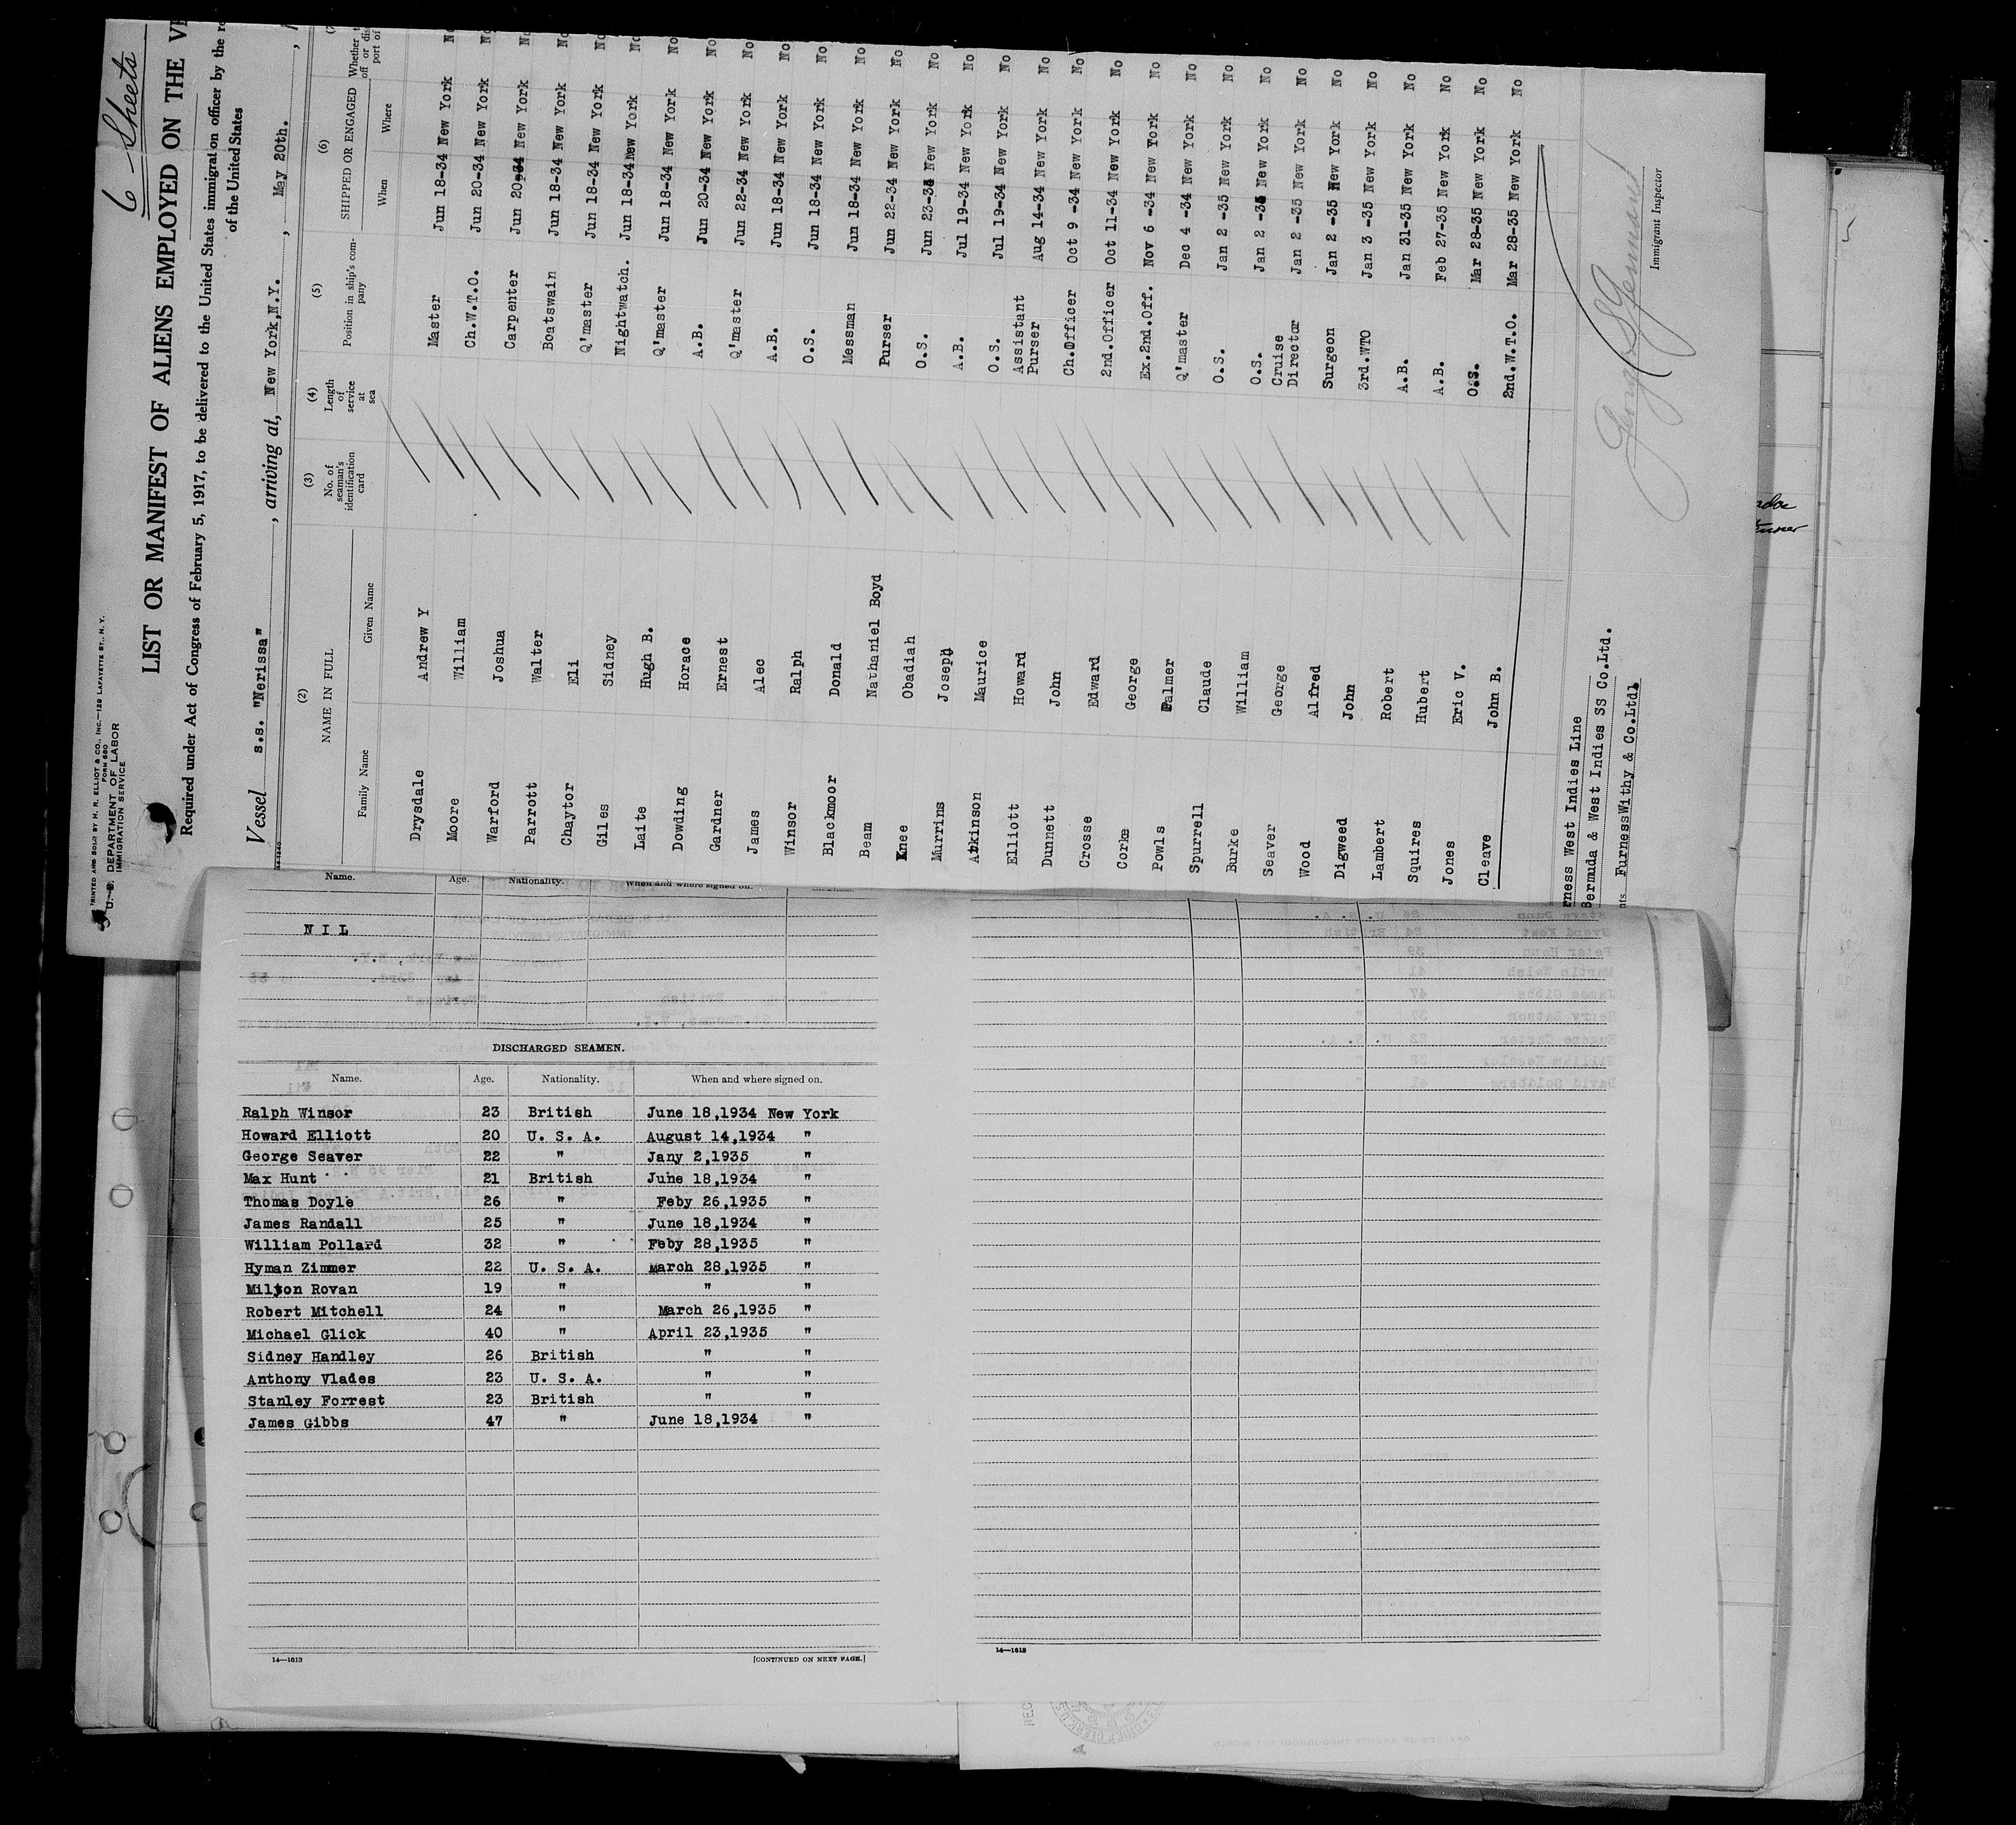 6 Sheets
PRINTED AND SOLD BY H. R. ELLIOT & CO., INC.—129 LAFAYETTE ST., N. Y.
FORM 680
U. S. DEPARTMENT OF LABOR
IMMIGRATION SERVICE
LIST OR MANIFEST OF ALIENS EMPLOYED ON THE
Required under Act of Congress of February 5, 1917, to be delivered to the United States immigration officer by the
of the United States
Vessel s.s. "Nerissa", arriving at, New York,N.Y., May 20th.,
(2) (3) (4) (5) (6)
NAME IN FULL No. of seaman's identification card Length of service at sea Position in ship's company SHIPPED OR ENGAGED Whether
Family Name Given Name When Where
Drysdale Andrew Y Master Jun 18-34 New York No
Moore William Ch.W.T.O. Jun 20-34 New York No
Warford Joshua Carpenter Jun 20-34 New York No
Parrott Walter Boatswain Jun 18-34 New York No
Chaytor Eli Q'master Jun 18-34 New York No
Giles Sidney Nightwatch. Jun 18-34 New York No
Laite Hugh B. Q'master Jun 18-34 New York No
Dowding Horace A.B. Jun 20-34 New York No
Gardner Ernest Q'master Jun 22-34 New York No
James Alec A.B. Jun 18-34 New York No
Winsor Ralph O.S. Jun 18-34 New York No
Blackmoor Donald Messman Jun 18-34 New York No
Beam Nathaniel Boyd Purser Jun 22-34 New York No
Knee Obadiah O.S. Jun 23-34 New York No
Murrins Joseph A.B. Jul 19-34 New York No
Atkinson Maurice O.S. Jul 19-34 New York No
Elliott Howard Assistant Purser Aug 14-34 New York No
Dunnett John Ch.Officer Oct 9 -34 New York No
Crosse Edward 2nd.Officer Oct 11-34 New York No
Corke George Ex.2nd.Off. Nov 6 -34 New York No
Powls Palmer Q'master Dec 4 -34 New York No
Spurrell Claude O.S. Jan 2 -35 New York No
Burke William O.S. Jan 2 -35 New York No
Seaver George Cruise Director Jan 2 -35 New York No
Wood Alfred Surgeon Jan 2 -35 New York No
Digweed John 3rd.WTO Jan 3 -35 New York No
Lambert Robert A.B. Jan 31-35 New York No
Squires Hubert A.B. Feb 27-35 New York No
Jones Eric V. O.S. Mar 28-35 New York No
Cleave John B. 2nd.W.T.O. Mar 28-35 New York No
rness West Indies Line
Bermuda & West Indies SS Co.Ltd.
nts FurnessWithy & Co.Ltd.
Immigrant Inspector
Name. Age. Nationality. When and where signed on.
NIL
DISCHARGED SEAMEN.
Name. Age. Nationality. When and where signed on.
Ralph Winsor 23 British June 18,1934 New York
Howard Elliott 20 U. S. A. August 14,1934 "
George Seaver 22 " Jany 2,1935 "
Max Hunt 21 British June 18,1934 "
Thomas Doyle 26 " Feby 26,1935 "
James Randall 25 " June 18,1934 "
William Pollard 32 " Feby 28,1935 "
Hyman Zimmer 22 U. S. A. March 28,1935 "
Milton Rovan 19 " " "
Robert Mitchell 24 " March 26,1935 "
Michael Glick 40 " April 23,1935 "
Sidney Handley 26 British " "
Anthony Vlades 23 U. S. A. " "
Stanley Forrest 23 British " "
James Gibbs 47 " June 18,1934 "
14—1613 [CONTINUED ON NEXT PAGE.]
14—1613